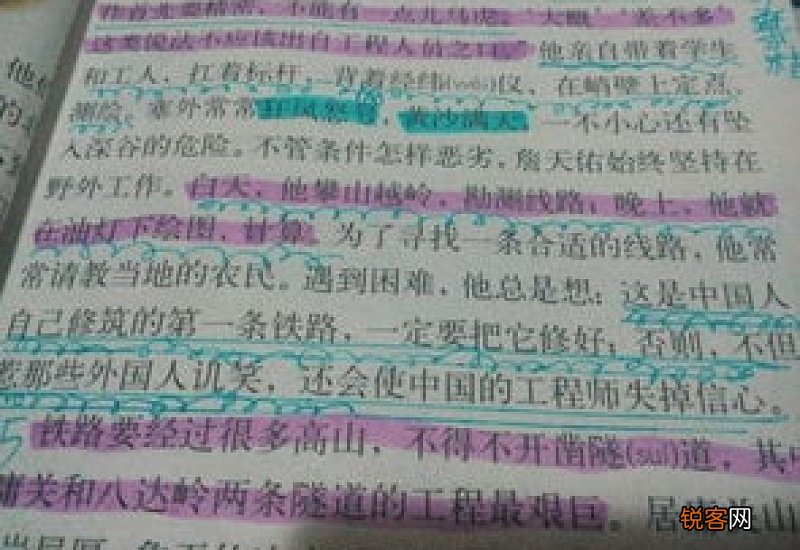 作首先要精密，不能有一点儿马虎。'大概''差不多'
这类说法不应该出自工程人员之口。"他亲自带着学生
和工人，扛着标杆，背着经纬(wěi)仪，在峭壁上定点、
测绘。塞外常常狂风怒号，黄沙满天，一不小心还有坠
入深谷的危险。不管条件怎样恶劣，詹天佑始终坚持在
野外工作。白天，他攀山越岭，勘测线路；晚上，他就
在油灯下绘图，计算。为了寻找一条合适的线路，他常
常请教当地的农民。遇到困难，他总是想：这是中国人
自己修筑的第一条铁路，一定要把它修好；否则，不但
惹那些外国人讥笑，还会使中国的工程师失掉信心。
铁路要经过很多高山，不得不开凿隧(suì)道，其中
庸关和八达岭两条隧道的工程最艰巨。居庸关山
锐客网